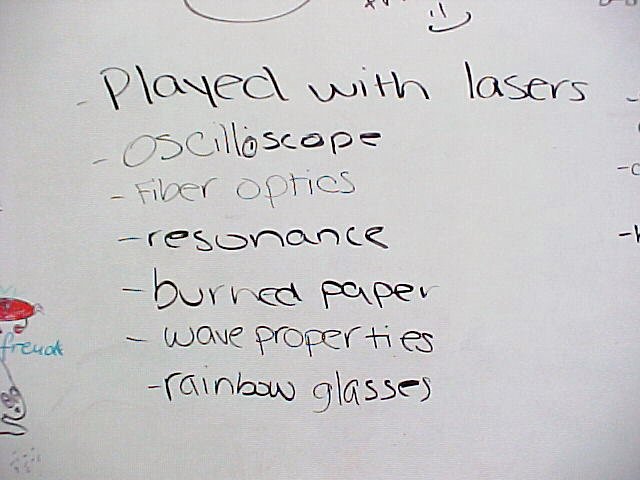 - Played with lasers
- oscilloscope
- Fiber optics
- resonance
- burned paper
- wave properties
- rainbow glasses